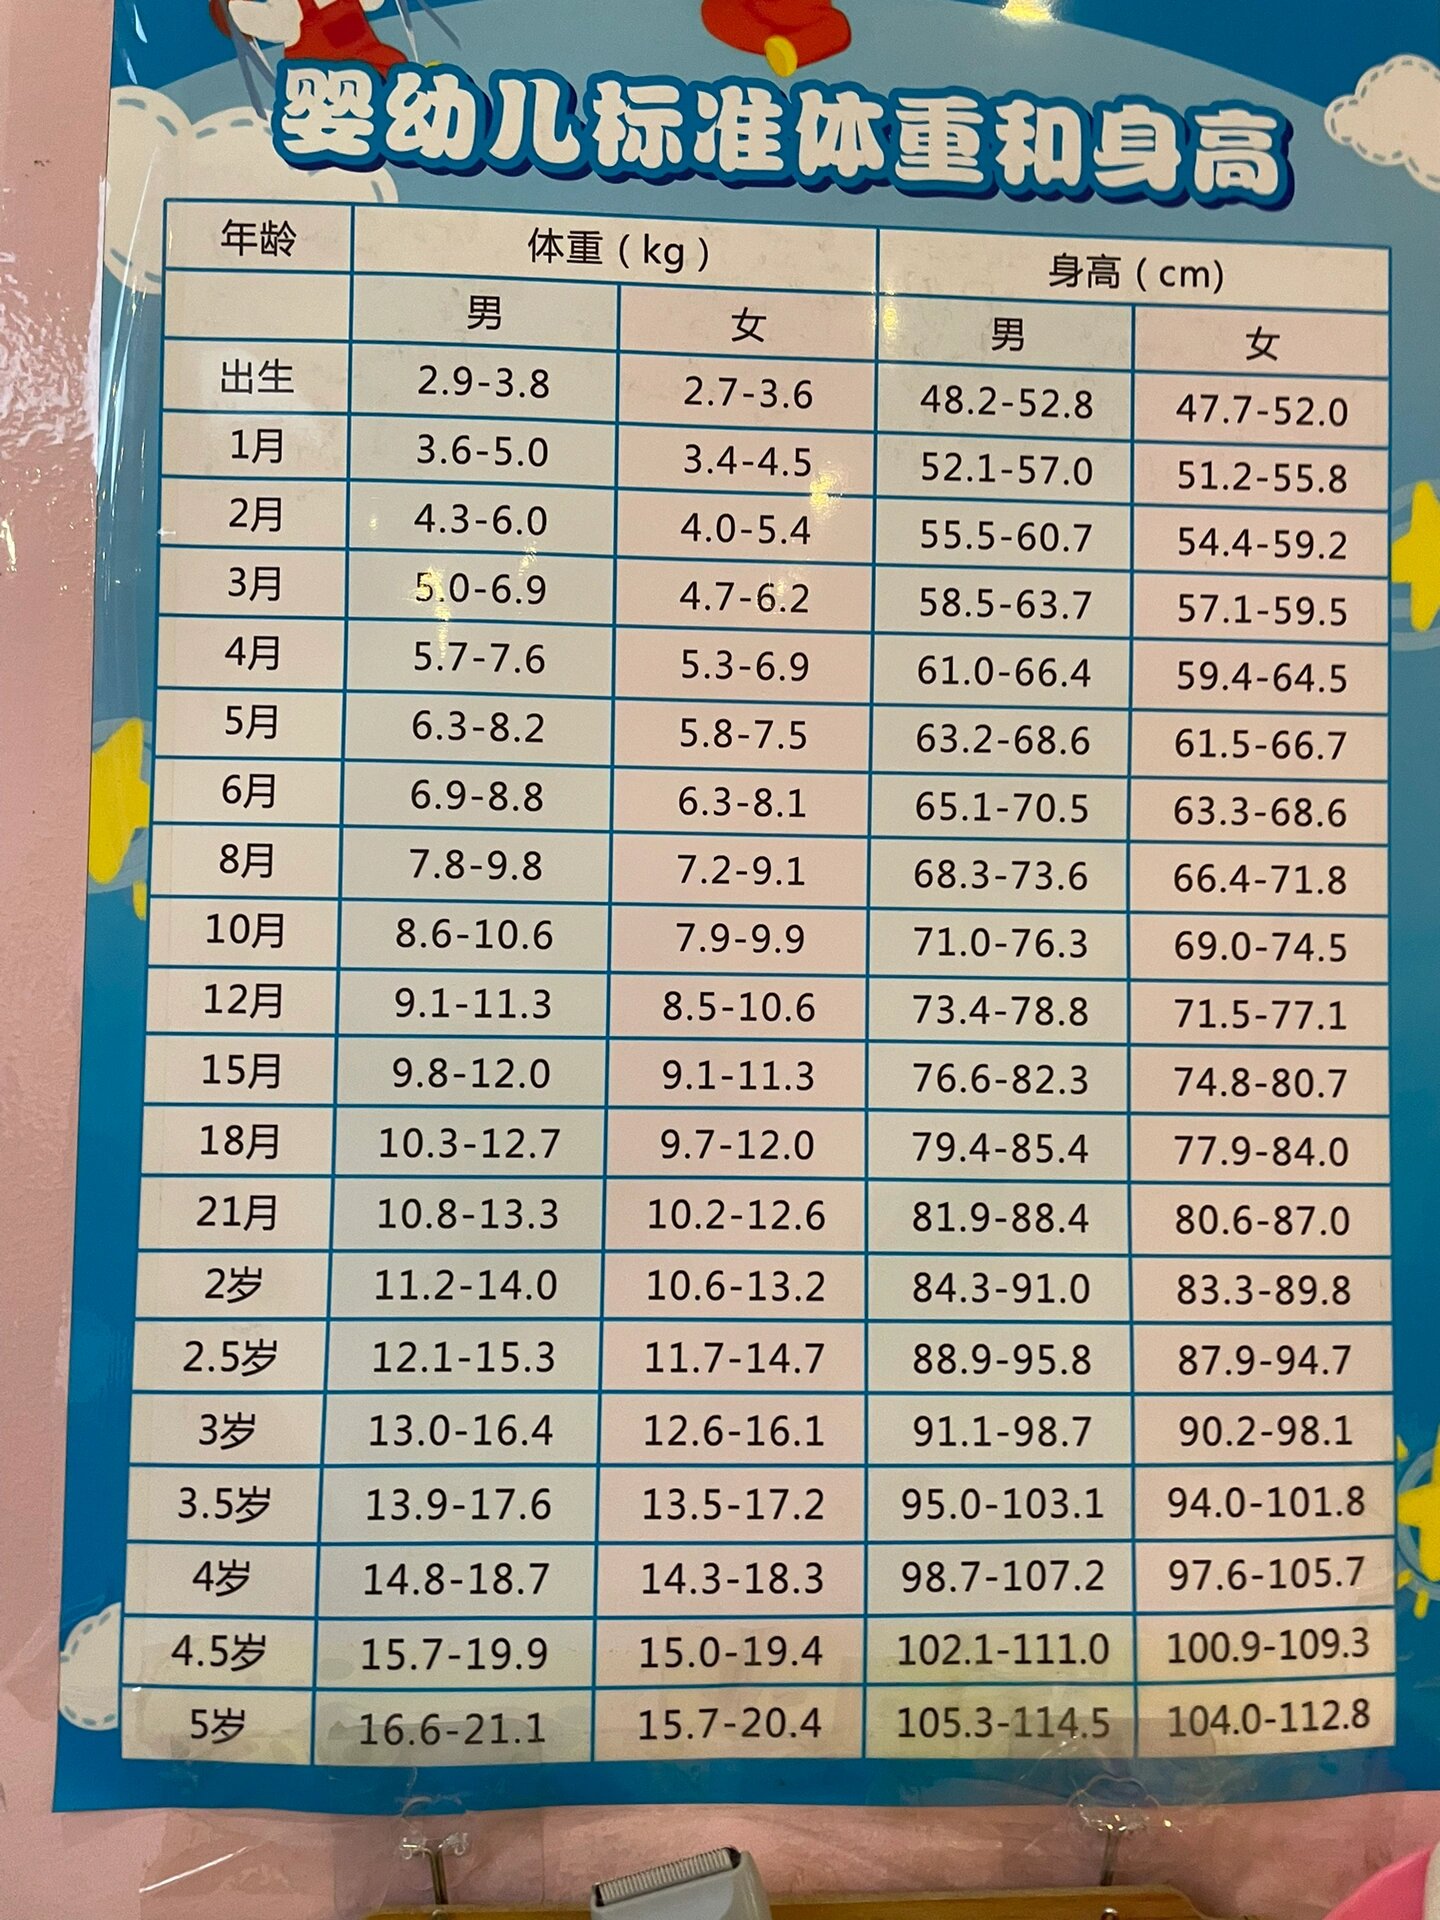 婴幼儿标准体重和身高
年龄 体重（kg） 身高（cm）
男 女 男 女
出生 2.9-3.8 2.7-3.6 48.2-52.8 47.7-52.0
1月 3.6-5.0 3.4-4.5 52.1-57.0 51.2-55.8
2月 4.3-6.0 4.0-5.4 55.5-60.7 54.4-59.2
3月 5.0-6.9 4.7-6.2 58.5-63.7 57.1-59.5
4月 5.7-7.6 5.3-6.9 61.0-66.4 59.4-64.5
5月 6.3-8.2 5.8-7.5 63.2-68.6 61.5-66.7
6月 6.9-8.8 6.3-8.1 65.1-70.5 63.3-68.6
8月 7.8-9.8 7.2-9.1 68.3-73.6 66.4-71.8
10月 8.6-10.6 7.9-9.9 71.0-76.3 69.0-74.5
12月 9.1-11.3 8.5-10.6 73.4-78.8 71.5-77.1
15月 9.8-12.0 9.1-11.3 76.6-82.3 74.8-80.7
18月 10.3-12.7 9.7-12.0 79.4-85.4 77.9-84.0
21月 10.8-13.3 10.2-12.6 81.9-88.4 80.6-87.0
2岁 11.2-14.0 10.6-13.2 84.3-91.0 83.3-89.8
2.5岁 12.1-15.3 11.7-14.7 88.9-95.8 87.9-94.7
3岁 13.0-16.4 12.6-16.1 91.1-98.7 90.2-98.1
3.5岁 13.9-17.6 13.5-17.2 95.0-103.1 94.0-101.8
4岁 14.8-18.7 14.3-18.3 98.7-107.2 97.6-105.7
4.5岁 15.7-19.9 15.0-19.4 102.1-111.0 100.9-109.3
5岁 16.6-21.1 15.7-20.4 105.3-114.5 104.0-112.8